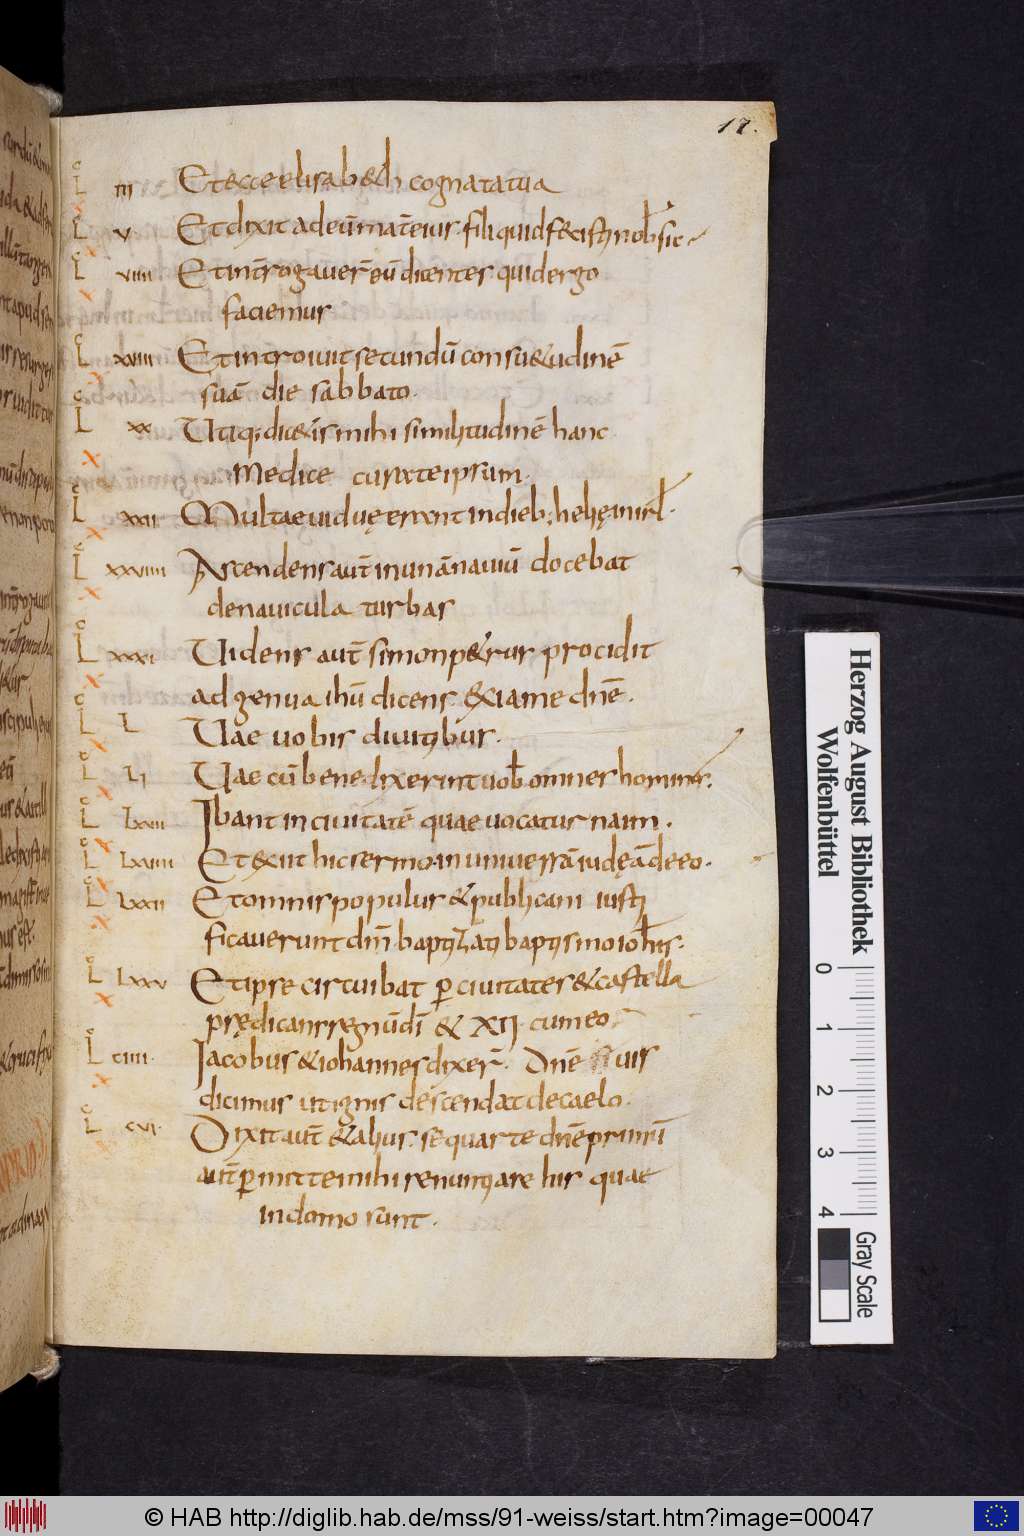 17.
L IIII Et ecce elisab&h cognata tua
L V Et dixit ad eū mat̄ eius. fili quid fecisti nob̄ sic
L VIIII Et int̄rogauer̄ eū dicentes quid ergo
faciemus
L XVIIII Et introiuit secundū consu&udinē
suā die sabbato.
L XX Utiq; dic&is mihi similitudinē hanc
Medice cura te ipsum.
L XXII Multae uiduę erant in dieb; helię in isrł.
L XXVIIII Ascendens aut̄ in unā nauiū docebat
de nauicula turbas
L XXXI Uidens aut̄ simon p&rus procidit
ad genua ihū dicens &xi a me dn̄e.
L L Uae uobis diuitibus.
L LI Uae cū benedixerint uob̄ omnes homines.
L LXVII Ibant in ciuitatē quae uocatur naim.
L LXVIIII Et &xiit hic sermo in uniuersā iudęā de eo.
L LXXII Et omnis populus & publicani iusti
ficauerunt dm̄ baptizati baptismo ioħis.
L LXXV Et ipse circuibat p̄ ciuitates & castella
prędicans regnū dī & XII. cum eo
L CIIII. Iacobus & iohannes dixer̄. Dn̄e si uis
dicimus ut ignis descendat de caelo.
L CVI. Dixit aut̄ & alius. sequar te dn̄e primū
aut̄ p̄mitte mihi renuntiare his quae
in domo sunt.
Herzog August Bibliothek
Wolfenbüttel
0 1 2 3 4
Gray Scale
© HAB http://diglib.hab.de/mss/91-weiss/start.htm?image=00047